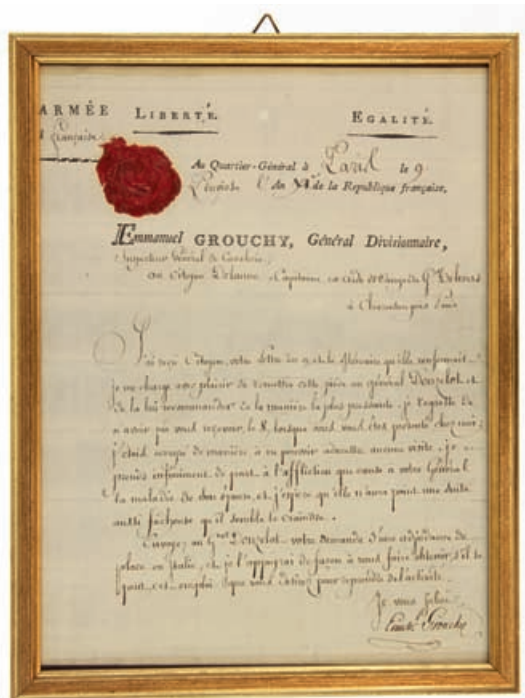 ARMÉE LIBERTÉ. EGALITÉ.
française
Au Quartier-Général à Paris le 9
l'An de la République française.
Emmanuel GROUCHY, Général Divisionnaire,
Inspecteur Général de Cavalerie
au Citoyen Delanne, Capitaine et aide de Camp du Gal
à Charenton près Paris
J'ai reçu Citoyen, votre lettre du et le Mémoire qu'elle renfermait.
je me charge avec plaisir de remettre cette pièce au général Donzelot et
de la lui recommander de la manière la plus pressante. je regrette de
n'avoir pu vous recevoir, le 8, lorsque vous vous êtes présenté chez moi;
j'étais occupé de manière à ne pouvoir admettre aucune visite. je
prends infiniment de part à l'affliction que cause à votre Général
la maladie de son épouse, et j'espère qu'elle n'aura point une suite
aussi fâcheuse qu'il semble le craindre.
Envoyez au Gal Donzelot votre demande d'une adjudance de
place en Italie, et je l'appuyerai de façon à vous faire obtenir, s'il se
peut, cet emploi que vous désirez pour reprendre de l'activité.
Je vous salue
Grouchy